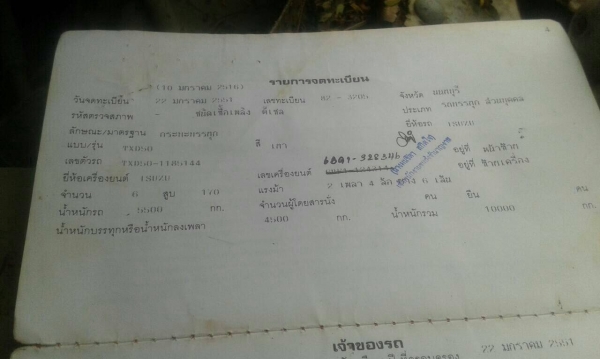 รายการจดทะเบียน
วันจดทะเบียน 22 มกราคม 2551 เลขทะเบียน 82 - 3205 จังหวัด นนทบุรี
รหัสตรวจสภาพ - ชนิดเชื้อเพลิง ดีเซล ประเภท รถบรรทุก ส่วนบุคคล
ลักษณะ/มาตรฐาน กระบะบรรทุก ยี่ห้อรถ ISUZU
แบบ/รุ่น TXD50 สี เทา
เลขตัวรถ TXD50-1185144 เลขเครื่องยนต์ 6BG1-328346 อยู่ที่
ยี่ห้อเครื่องยนต์ ISUZU อยู่ที่
จำนวน 6 สูบ 170 แรงม้า 2 เพลา 4 ล้อ ยาง 6 เส้น
น้ำหนักรถ 5500 กก. จำนวนผู้โดยสารนั่ง คน ยืน คน
น้ำหนักบรรทุกหรือน้ำหนักลงเพลา 4500 กก. น้ำหนักรวม 10000 กก.
เจ้าของรถ
22 มกราคม 2551